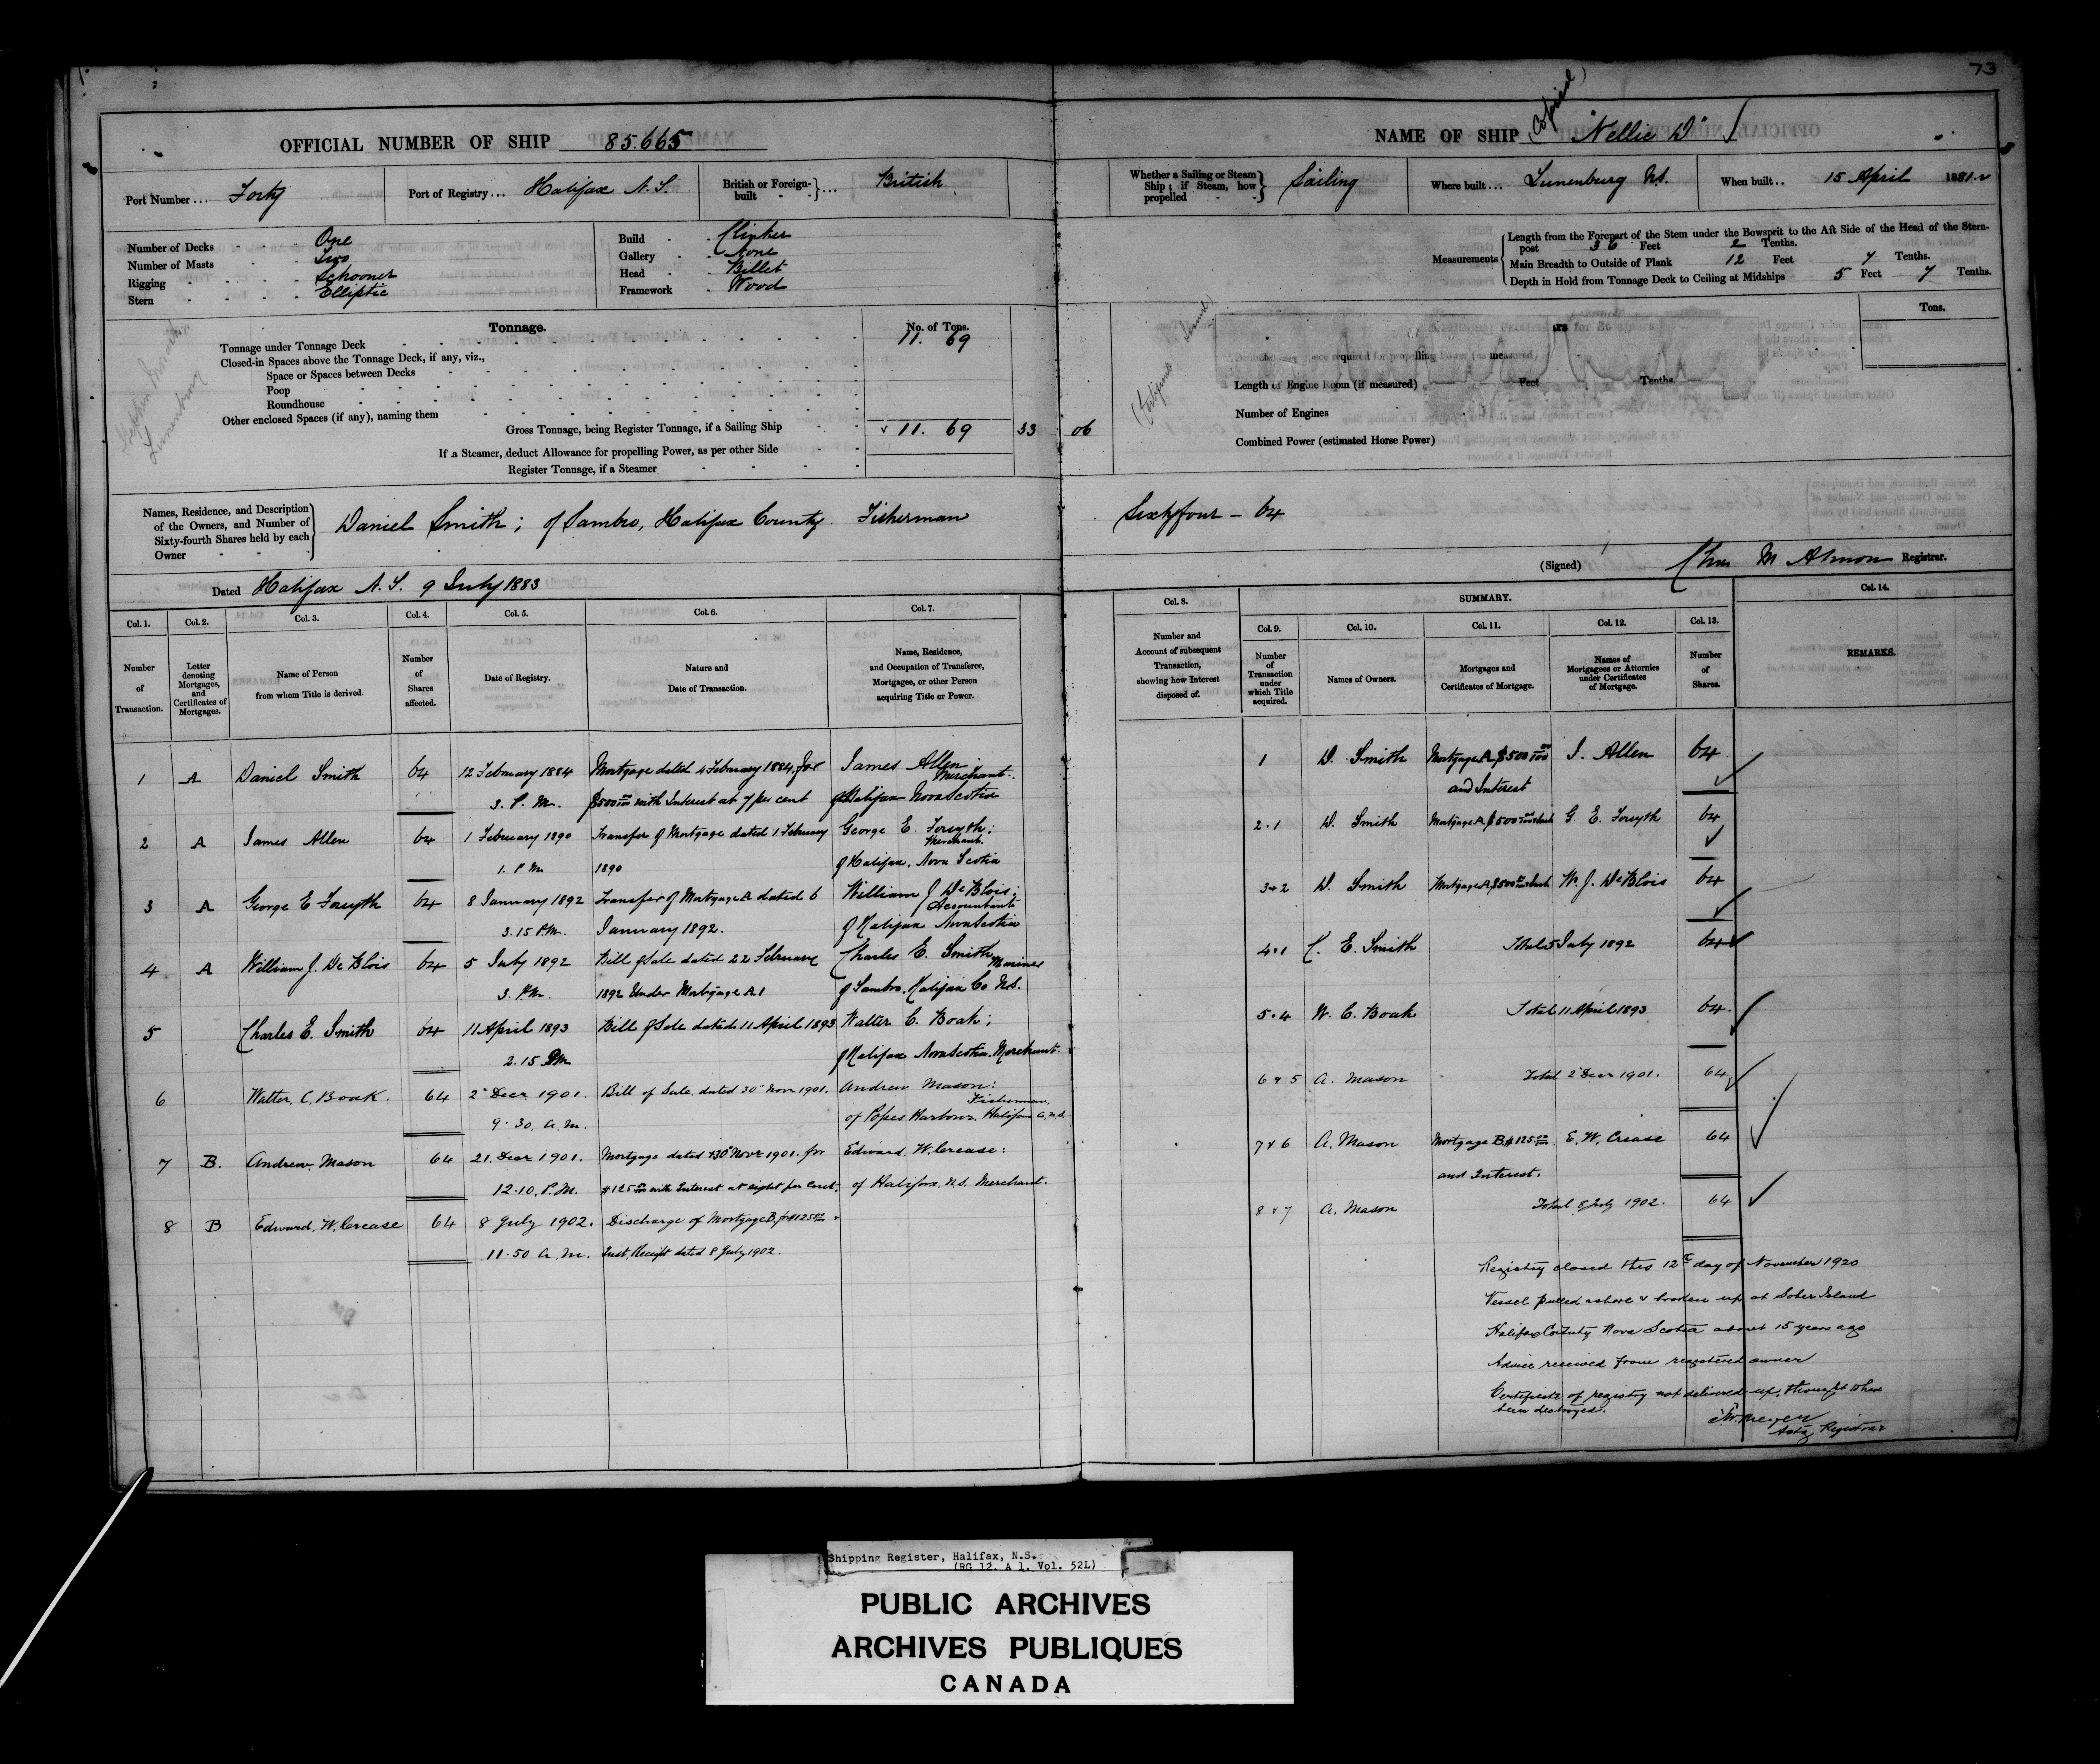 73
OFFICIAL NUMBER OF SHIP 85.665
Port Number ... Forty
Port of Registry ... Halifax N.S.
British or Foreign-built } ... British
Number of Decks One
Number of Masts Two
Rigging Schooner
Stern Elliptic
Build Clinker
Gallery None
Head Billet
Framework Wood
Tonnage. No. of Tons.
Tonnage under Tonnage Deck 11. 69
Closed-in Spaces above the Tonnage Deck, if any, viz.,
Space or Spaces between Decks
Poop
Roundhouse
Other enclosed Spaces (if any), naming them
Gross Tonnage, being Register Tonnage, if a Sailing Ship 11. 69 33 06
If a Steamer, deduct Allowance for propelling Power, as per other Side
Register Tonnage, if a Steamer
Lunenburg
Names, Residence, and Description of the Owners, and Number of Sixty-fourth Shares held by each Owner } Daniel Smith; of Sambro, Halifax County. Fisherman
Dated Halifax N.S. 9 July 1883
Col. 1. Col. 2. Col. 3. Col. 4. Col. 5. Col. 6. Col. 7.
Number of Transaction.
Letter denoting Mortgages, and Certificates of Mortgages.
Name of Person from whom Title is derived.
Number of Shares affected.
Date of Registry.
Nature and Date of Transaction.
Name, Residence, and Occupation of Transferee, Mortgagee, or other Person acquiring Title or Power.
1 A Daniel Smith 64 12 February 1884 Mortgage dated 4 February 1884, for James Allen; Merchant.
3. P.M. $500 00/100 with Interest at 7 per cent of Halifax Nova Scotia
2 A James Allen 64 1 February 1890 Transfer of Mortgage dated 1 February George E. Forsyth; Merchant.
1. P.M. 1890 of Halifax, Nova Scotia
3 A George E Forsyth 64 8 January 1892 Transfer of Mortgage A dated 6 William J. DeBlois; Accountant
3.15 P.M. January 1892. of Halifax Nova Scotia
4 A William J. De Blois 64 5 July 1892 Bill of Sale dated 22 February Charles E. Smith Mariner
3. P.M. 1892 Under Mortgage A1 of Sambro. Halifax Co N.S.
5 Charles E. Smith 64 11 April 1893 Bill of Sale dated 11 April 1893 Walter C. Boak;
2.15 PM of Halifax Nova Scotia. Merchant.
6 Walter. C. Boak. 64 2" Decr 1901. Bill of Sale. dated 30" Novr 1901. Andrew Mason: Fisherman.
9.30. a.m. of Popes Harbour. Halifax Co. N.S.
7 B. Andrew. Mason 64 21. Decr 1901. Mortgage dated 30" Novr 1901. for Edward. W. Crease:
12.10. P.M. $125 00/100 with Interest at eight per cent. of Halifax. N.S. Merchant.
8 B Edward. W. Crease 64 8 July 1902. Discharge of Mortgage B. for $125 00/100 +
11.50 a.m. Inst. Receipt dated 8 July 1902.
NAME OF SHIP (Copied) "Nellie D"
Whether a Sailing or Steam Ship; if Steam, how propelled } Sailing
Where built ... Lunenburg N.S.
When built .. 15 April 1881.
Measurements { Length from the Forepart of the Stem under the Bowsprit to the Aft Side of the Head of the Stern-post 36 Feet 2 Tenths.
Main Breadth to Outside of Plank 12 Feet 7 Tenths.
Depth in Hold from Tonnage Deck to Ceiling at Midships 5 Feet 7 Tenths.
Tons.
Length of Engine Room (if measured) Feet Tenths.
Number of Engines
Combined Power (estimated Horse Power)
Sixtyfour – 64
(Signed) Chas M Almon Registrar.
SUMMARY.
Col. 8. Col. 9. Col. 10. Col. 11. Col. 12. Col. 13. Col. 14.
Number and Account of subsequent Transaction, showing how Interest disposed of.
Number of Transaction under which Title acquired.
Names of Owners.
Mortgages and Certificates of Mortgage.
Names of Mortgagees or Attornies under Certificates of Mortgage.
Number of Shares.
REMARKS.
1 D. Smith Mortgage A $500 00/100 J. Allen 64
and Interest
2.1 D. Smith Mortgage A $500 G. E. Forsyth 64
3+2 D. Smith Mortgage A $500 W. J. DeBlois 64
4.1 C. E. Smith Total 5 July 1892 64
5.4 W. C. Boak Total 11 April 1893 64.
6 & 5 A. Mason Total 2" Decr 1901. 64
7 & 6 A. Mason Mortgage B. $125 00/100 E. W. Crease 64
and Interest.
8 & 7 A. Mason Total 8 July 1902. 64
Registry closed this 12th day of November 1920
Vessel pulled ashore & broken up at Sober Island
Halifax County Nova Scotia about 15 years ago
Advice received from registered owner
Certificate of registry not delivered up, thought to have
been destroyed.
Actg Registrar
Shipping Register, Halifax, N.S.
(RG 12. A 1. Vol. 52L)
PUBLIC ARCHIVES
ARCHIVES PUBLIQUES
CANADA